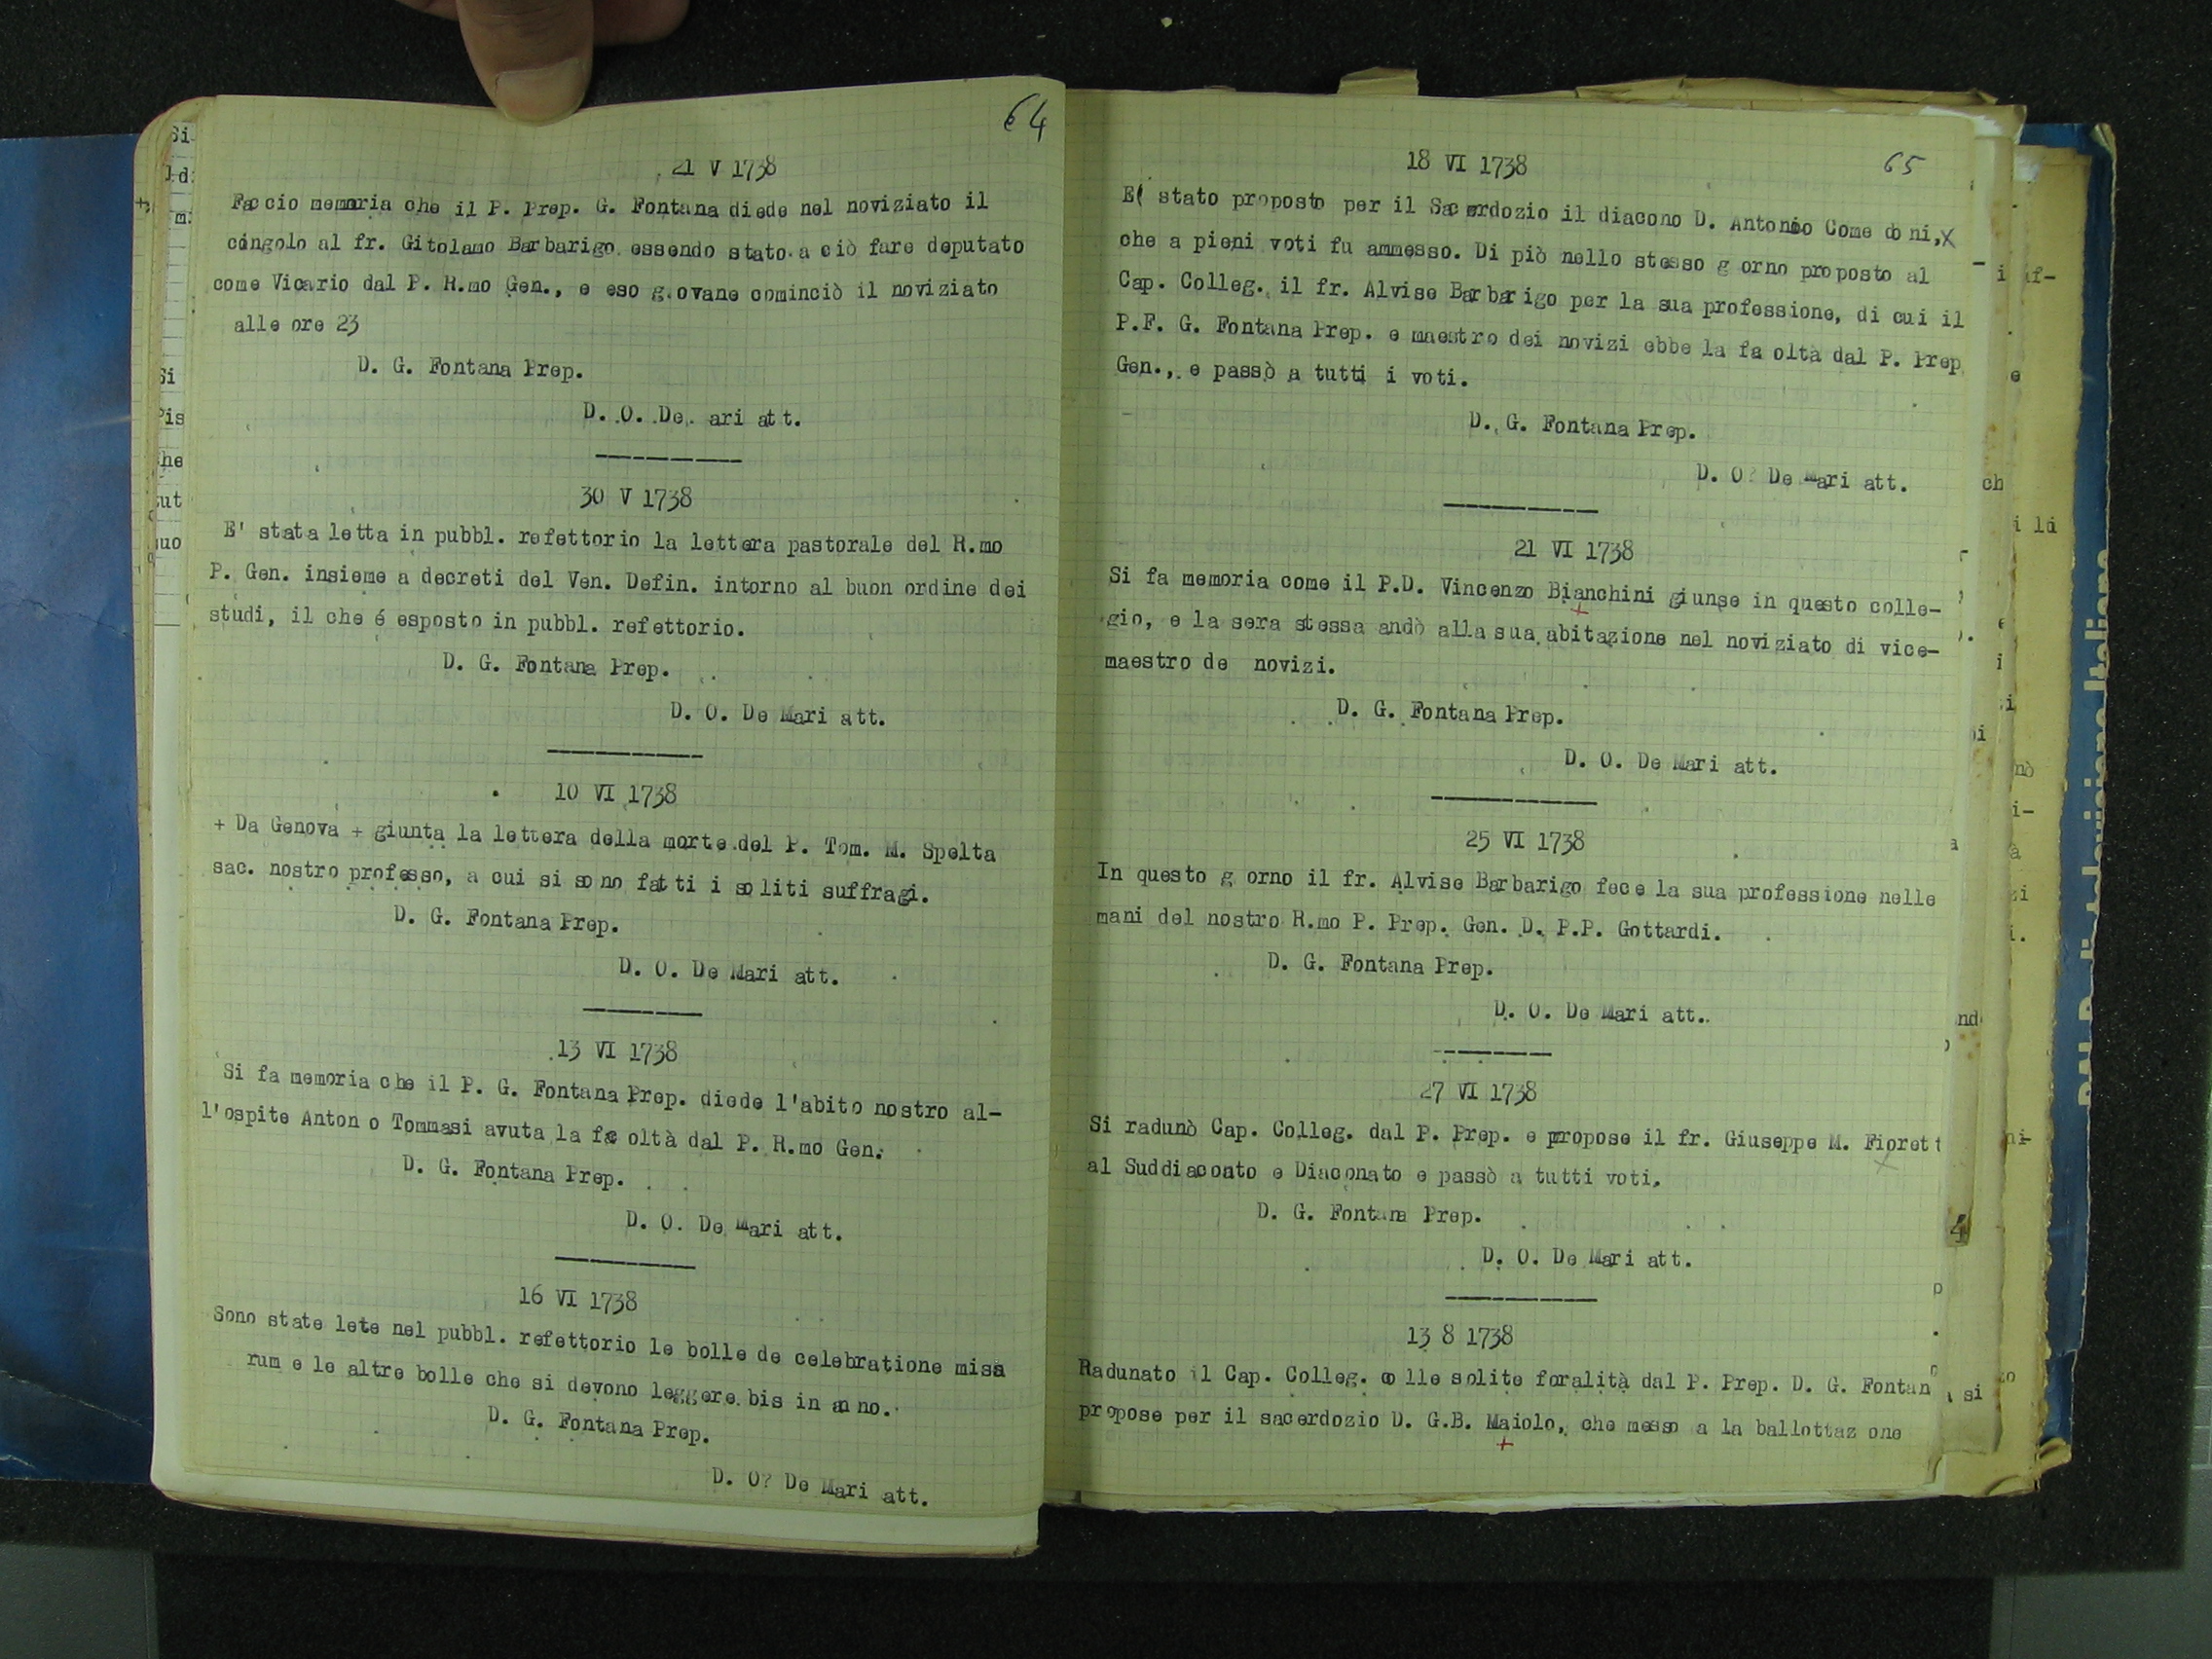 64
21 V 1738
Faccio memoria che il P. Prep. G. Fontana diede nel noviziato il
cingolo al fr. Gitolamo Barbarigo essendo stato a ciò fare deputato
come Vicario dal P. R.mo Gen., e eso giovane cominciò il noviziato
alle ore 23
D. G. Fontana Prep.
D. O. De ari att.
30 V 1738
E' stata letta in pubbl. refettorio la lettera pastorale del R.mo
P. Gen. insieme a decreti del Ven. Defin. intorno al buon ordine dei
studi, il che é esposto in pubbl. refettorio.
D. G. Fontana Prep.
D. O. De Mari att.
10 VI 1738
+ Da Genova + giunta la lettera della morte del P. Tom. M. Spelta
sac. nostro professo, a cui si sono fatti i soliti suffragi.
D. G. Fontana Prep.
D. O. De Mari att.
13 VI 1738
Si fa memoria che il P. G. Fontana Prep. diede l'abito nostro al-
l'ospite Anton o Tommasi avuta la fac oltà dal P. R.mo Gen.
D. G. Fontana Prep.
D. O. De Mari att.
16 VI 1738
Sono state lete nel pubbl. refettorio le bolle de celebratione misa
rum e le altre bolle che si devono leggere bis in anno.
D. G. Fontana Prep.
D. O? De Mari att.
65
18 VI 1738
E( stato proposto per il Sacerdozio il diacono D. Antonio Come do ni,X
che a pieni voti fu ammesso. Di piò nello stesso g orno proposto al
Cap. Colleg. il fr. Alvise Barbarigo per la sua professione, di cui il
P.F. G. Fontana Prep. e maestro dei novizi ebbe la fa oltà dal P. Prep
Gen., e passò a tutti i voti.
D. G. Fontana Prep.
D. O? De Mari att.
21 VI 1738
Si fa memoria come il P.D. Vincenzo Bianchini giunse in questo colle-
gio, e la sera stessa andò alla sua abitazione nel noviziato di vice-
maestro de novizi.
D. G. Fontana Prep.
D. O. De Mari att.
25 VI 1738
In questo g orno il fr. Alvise Barbarigo fece la sua professione nelle
mani del nostro R.mo P. Prep. Gen. D. P.P. Gottardi.
D. G. Fontana Prep.
D. O. De Mari att.
27 VI 1738
Si radunò Cap. Colleg. dal P. Prep. e propose il fr. Giuseppe M. Fiorett
al Suddiaconto e Diaconato e passò a tutti voti.
D. G. Fontana Prep.
D. O. De Mari att.
13 8 1738
Radunato il Cap. Colleg. co lle solite foralità dal P. Prep. D. G. Fontan
propose per il sacerdozio D. G.B. Maiolo, che messo a la ballottaz one